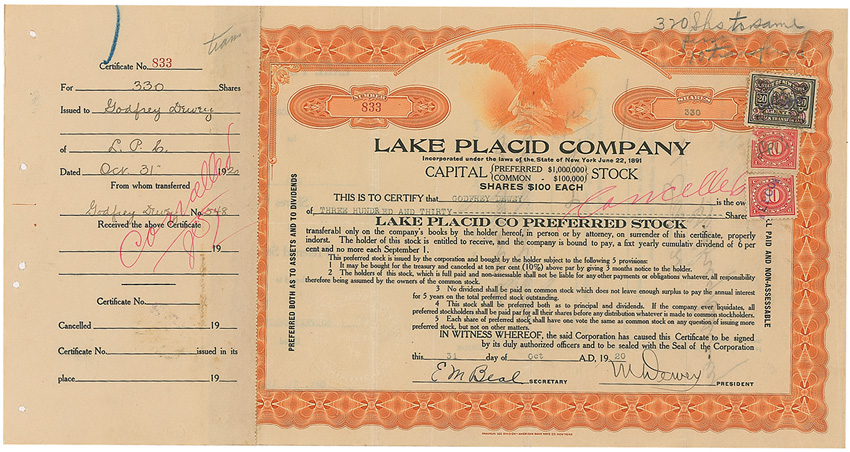 team
Certificate No. 833
For 330 Shares
Issued to Godfrey Dewey
of L. P. C.
Dated Oct. 31 1920
From whom transferred
Godfrey Dewey No. 548
Received the above Certificate
19
Cancelled
Certificate No.
Cancelled 19
Certificate No. issued in its
place 19
320 Shs to same
NUMBER
833
SHARES
330
20
10
10
LAKE PLACID COMPANY
Incorporated under the laws of the State of New York June 22, 1891
CAPITAL PREFERRED $1,000,000 STOCK
COMMON - $100,000
SHARES $100 EACH
Cancelled
THIS IS TO CERTIFY that GODFREY DEWEY is the ow
of THREE HUNDRED AND THIRTY Shares
LAKE PLACID CO PREFERRED STOCK
transferabl only on the company's books by the holder hereof, in person or by attorney, on surrender of this certificate, properly
indorst. The holder of this stock is entitled to receive, and the company is bound to pay, a fixt yearly cumulativ dividend of 6 per
cent and no more each September 1.
This preferred stock is issued by the corporation and bought by the holder subject to the following 5 provisions:
1 It may be bought for the treasury and canceled at ten per cent (10%) above par by giving 3 months notice to the holder.
2 The holders of this stock, which is full paid and non-assessable shall not be liable for any other payments or obligations whatever, all responsibility
therefore being assumed by the owners of the common stock.
3 No dividend shall be paid on common stock which does not leave enough surplus to pay the annual interest
for 5 years on the total preferred stock outstanding.
4 This stock shall be preferred both as to principal and dividends. If the company ever liquidates, all
preferred stockholders shall be paid par for all their shares before any distribution whatever is made to common stockholders.
5 Each share of preferred stock shall have one vote the same as common stock on any question of issuing more
preferred stock, but not on other matters.
IN WITNESS WHEREOF, the said Corporation has caused this Certificate to be signed
by its duly authorized officers and to be sealed with the Seal of the Corporation
this 31 day of Oct A.D. 1920
E M Beal SECRETARY M Dewey PRESIDENT
PREFERRED BOTH AS TO ASSETS AND TO DIVIDENDS
LL PAID AND NON-ASSESSABLE